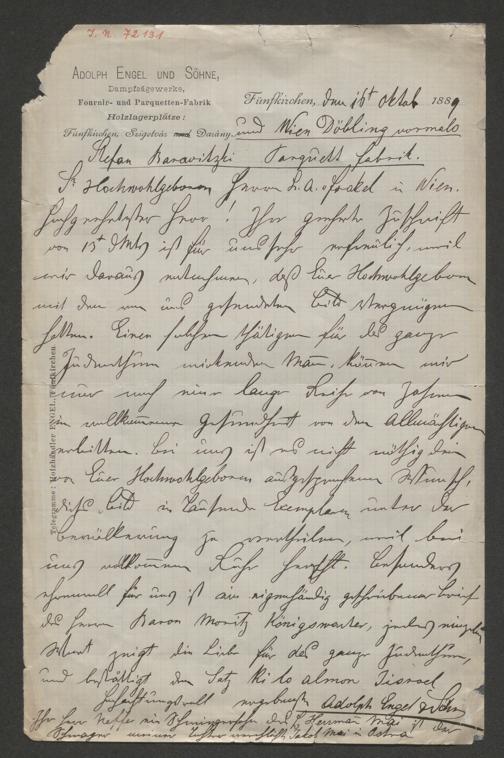 J. N. 72131
ADOLPH ENGEL UND SÖHNE,
Dampfsägewerke,
Fournir- und Parquetten-Fabrik
Holzlagerplätze:
Fünfkirchen, den 16t Oktob 1889
Fünfkirchen, Szigetvár und Darány und Wien Döbling vormals
Stefan Barawitzki Parquett Fabrik.
Sr Hochwohlgeboren Herrn L. A. Frankl in Wien.
Hochgeehrtester Herr! Ihre geehrte Zuschrift
von 15t dMts ist für uns sehr erfreulich, weil
wir daraus entnehmen, daß Euer Hochwohlgeboren
mit dem von uns gesendeten Bild Vergnügen
hatten. Einen solchen thätigen für das ganze
Judenthum wirkenden Man, können wir
nur noch eine lange Reihe von Jahren
in vollkommener Gesundheit von dem Allmächtigen
erbitten. Bei uns ist es nicht nöthig den
von Euer Hochwohlgeboren ausgesprochenen Wunsch,
dieses Bild in Tausende Exemplare unter der
Bevölkerung zu vertheilen, weil bei
uns vollkommen Ruhe herscht. Besonders
ehrenvoll für uns ist ein eigenhändig geschriebener Brief
des Herrn Baron Moritz Königswarter, jedes einzelne
Wort zeigt die Liebe für das ganze Judenthum,
und bestättigt den Satz ki lo almon Jisroel
Hochachtungsvoll ergebenst Adolph Engel & Söhne
Ihr Herr Neffe ein Schwiegersohn des H. Herrman Mai ist der
Schwager meiner Tochter Mai in
Telegramme: Holzhändler ENGEL, Fünfkirchen